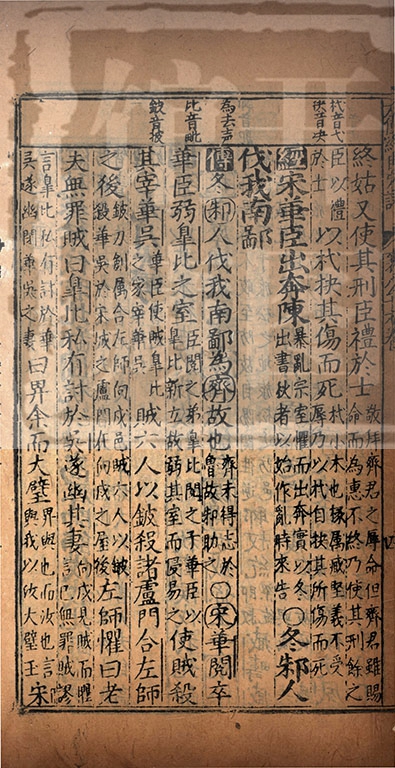 杙音弋
抉音决
為去声
比音毗
鈹音披
終姑又使其刑臣禮於士敬拜齊君之辱命但齊君雖賜命而為惠不終乃使其刑餘之
臣以禮於士以杙抉其傷而死杙小木也橛属臧堅義不受辱乃以杙自抉其所傷而死
經宋華臣出奔陳暴亂宗室懼而出奔實以冬出書秋者以始作亂時來告〇冬邾人
伐我南鄙
傳冬邾人伐我南鄙為齊故也齊未得志於魯故邾助之〇宋華閱卒
華臣弱皐比之室臣閱之弟皐比閱之子華臣以皐比新立故弱其室而侵易之使賊殺
其宰華吳華臣使賊皐比之家宰華吳賊六人以鈹殺諸盧門合左師
之後鈹刀劍属合左師向戍邑賊六人以鈹殺華吳於宋城之盧門在向戍之屋後左師懼曰老
夫無罪賊曰皐比私有討於吳遂幽其妻向戍見賊而懼言己無罪賊謬
言皐比私有討於華吳遂幽閉華吳之妻曰畀余而大璧畀與也而汝也言與我以汝大璧王宋